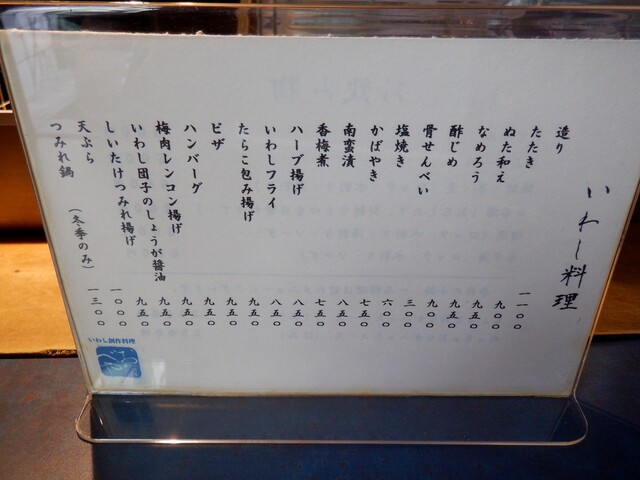 いわし料理
造り 一一〇〇
たたき 九〇〇
ぬた和え 九五〇
なめろう 九五〇
酢じめ 九〇〇
骨せんべい 三〇〇
塩焼き 六〇〇
かばやき 七五〇
南蛮漬 八五〇
香梅煮 七五〇
ハーブ揚げ 八五〇
いわしフライ 八五〇
たらこ包み揚げ 九五〇
ピザ 九五〇
ハンバーグ 九五〇
梅肉レンコン揚げ 九五〇
いわし団子のしょうが醤油 九五〇
しいたけつみれ揚げ 九五〇
天ぷら 一〇〇〇
つみれ鍋 (冬季のみ) 一三〇〇
いわし創作料理